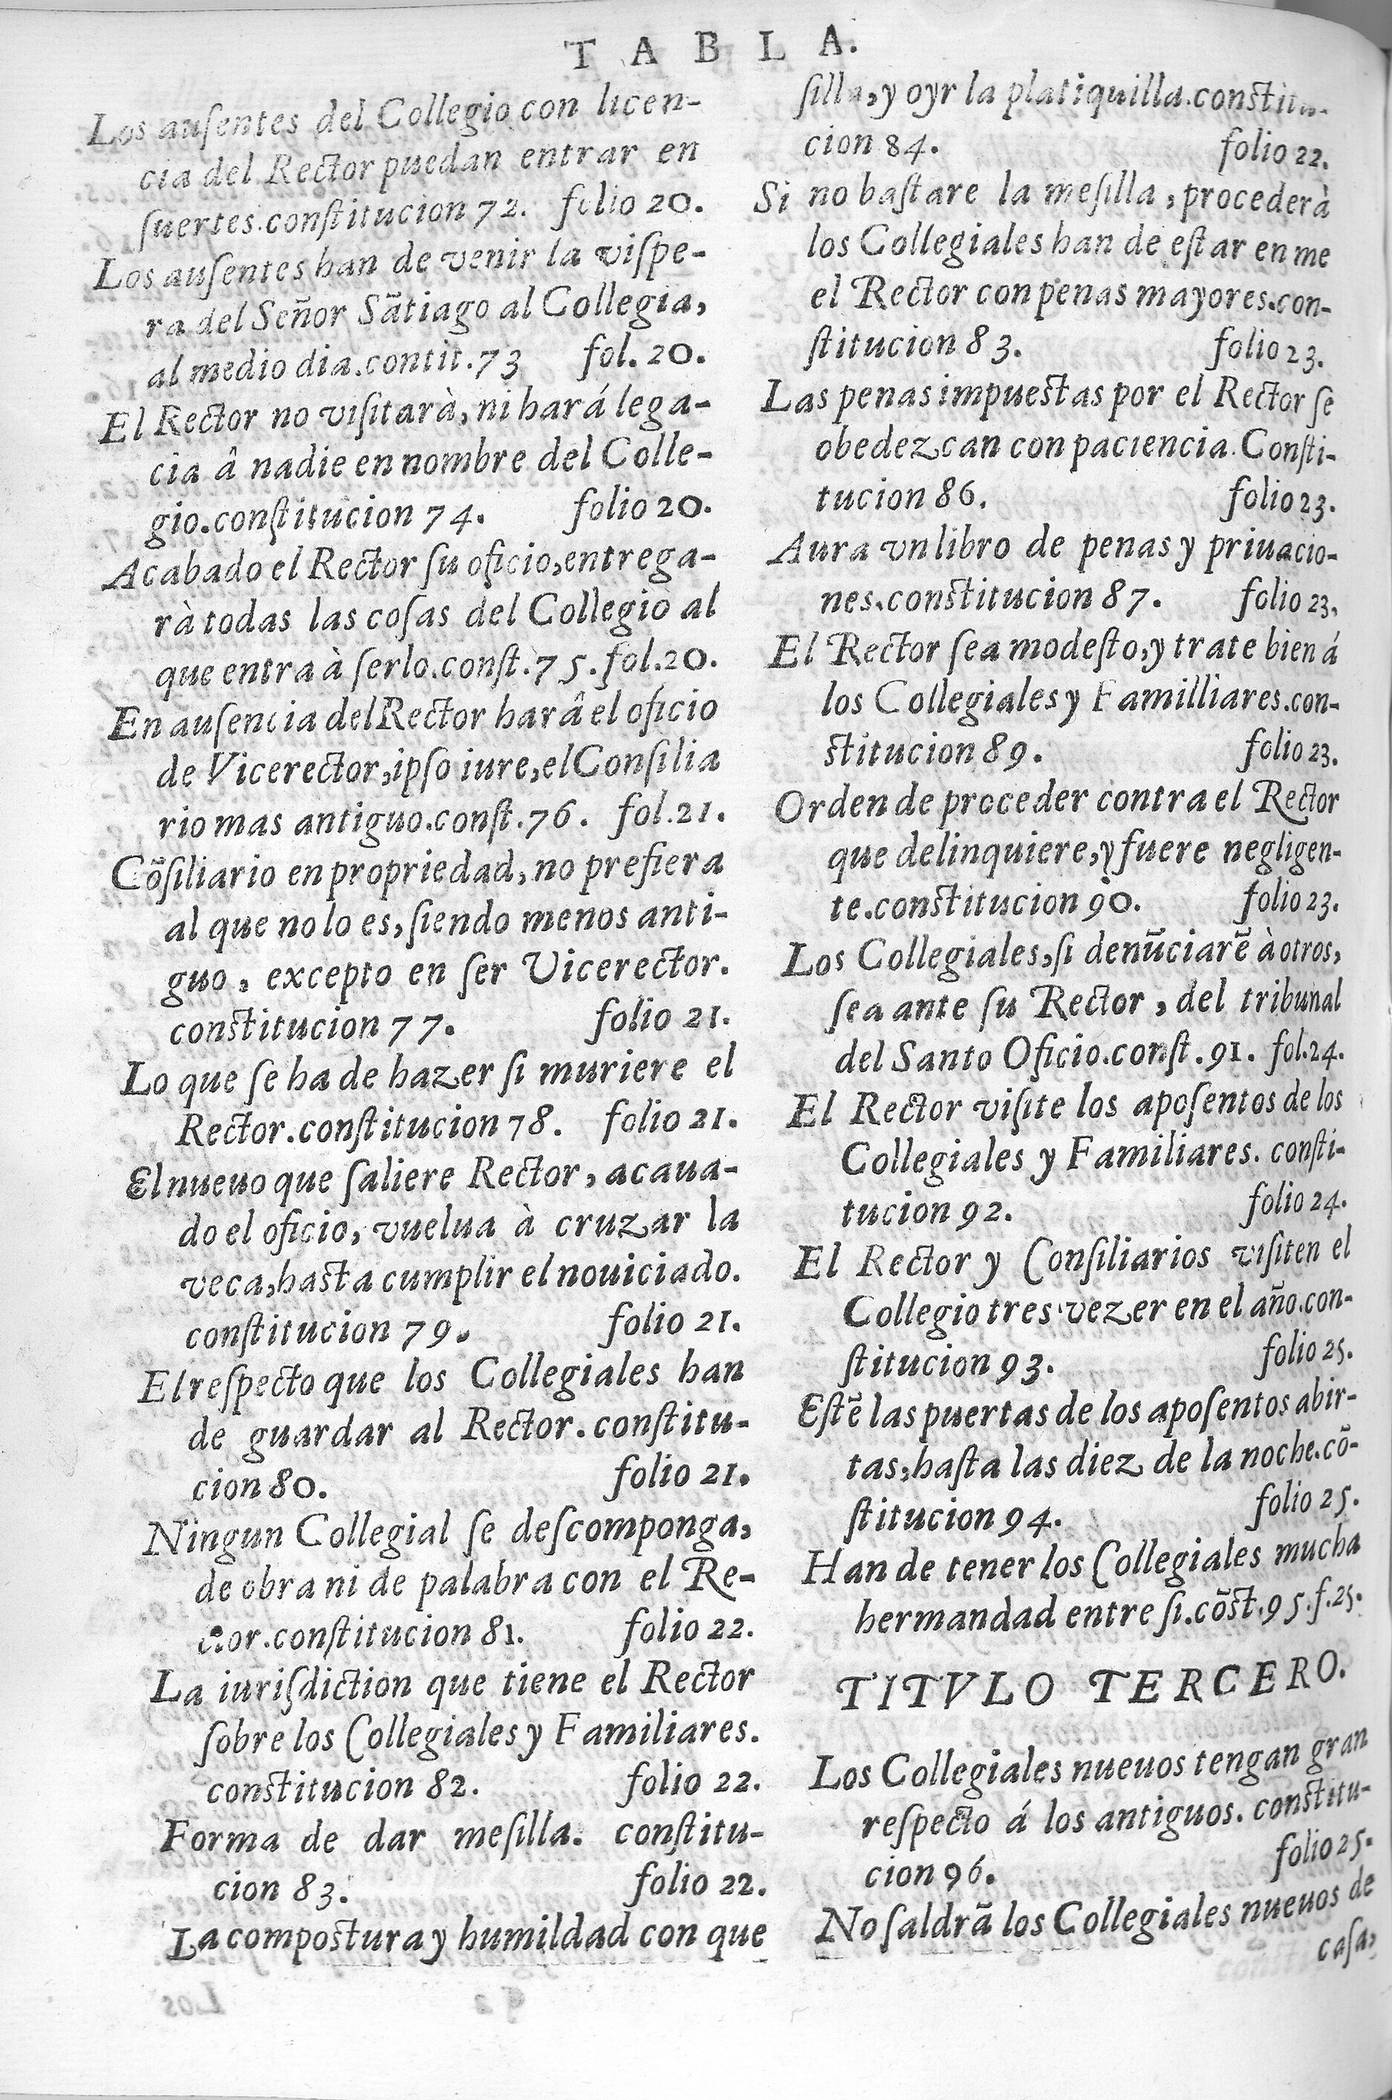 TABLA.
Los auſentes del Collegio con licen-
cia del Rector puedan entrar en
ſuertes.conſtitucion 72. folio 20.
Los auſentes han de venir la viſpe-
ra del Señor Sãtiago al Collegia,
al medio dia.contit.73 fol. 20.
El Rector no viſitarà, ni hará lega-
cia â nadie en nombre del Colle-
gio.conſtitucion 74. folio 20.
Acabado el Rector ſu oficio,entrega-
rà todas las coſas del Collegio al
que entra à ſerlo.conſt.75.fol.20.
En auſencia del Rector harâ el oficio
de Vicerector,ipſo iure,el Conſilia
rio mas antiguo.conſt.76. fol.21.
Cõſiliario en propriedad,no prefiera
al que no lo es,ſiendo menos anti-
guo, excepto en ſer Vicerector.
conſtitucion 77. folio 21.
Lo que ſe ha de hazer ſi muriere el
Rector.conſtitucion 78. folio 21.
El nueuo que ſaliere Rector, acaua-
do el oficio, vuelua à cruzar la
veca,haſta cumplir el nouiciado.
conſtitucion 79. folio 21.
El reſpecto que los Collegiales han
de guardar al Rector.conſtitu-
cion 80. folio 21.
Ningun Collegial ſe deſcomponga,
de obra ni de palabra con el Re-
ctor.conſtitucion 81. folio 22.
La iuriſdiction que tiene el Rector
ſobre los Collegiales y Familiares.
conſtitucion 82. folio 22.
Forma de dar meſilla. conſtitu-
cion 83. folio 22.
La compoſtura y humildad con que
ſilla,y oyr la platiquilla.conſtitu-
cion 84. folio 22.
Si no baſtare la meſilla, procederà
los Collegiales han de eſtar en me
el Rector con penas mayores.con-
ſtitucion 83. folio 23.
Las penas impueſtas por el Rector ſe
obedezcan con paciencia.Conſti-
tucion 86. folio 23.
Aura vn libro de penas y priuacio-
nes.conſtitucion 87. folio 23.
El Rector ſea modeſto,y trate bien á
los Collegiales y Familliares.con-
ſtitucion 89. folio 23.
Orden de proceder contra el Rector
que delinquiere,y fuere negligen-
te.conſtitucion 90. folio 23.
Los Collegiales,ſi denũciarẽ à otros,
ſea ante ſu Rector, del tribunal
del Santo Oficio.conſt.91. fol.24.
El Rector viſite los apoſentos de los
Collegiales y Familiares. conſti-
tucion 92. folio 24.
El Rector y Conſiliarios viſiten el
Collegio tres vezer en el año.con-
ſtitucion 93. folio 25.
Eſtẽ las puertas de los apoſentos abir-
tas,haſta las diez de la noche.cõ-
ſtitucion 94. folio 25.
Han de tener los Collegiales mucha
hermandad entre ſi.cõſt.95.f.25.
TITVLO TERCERO.
Los Collegiales nueuos tengan gran
reſpecto á los antiguos. conſtitu-
cion 96. folio 25.
No ſaldrã los Collegiales nueuos de
caſa,